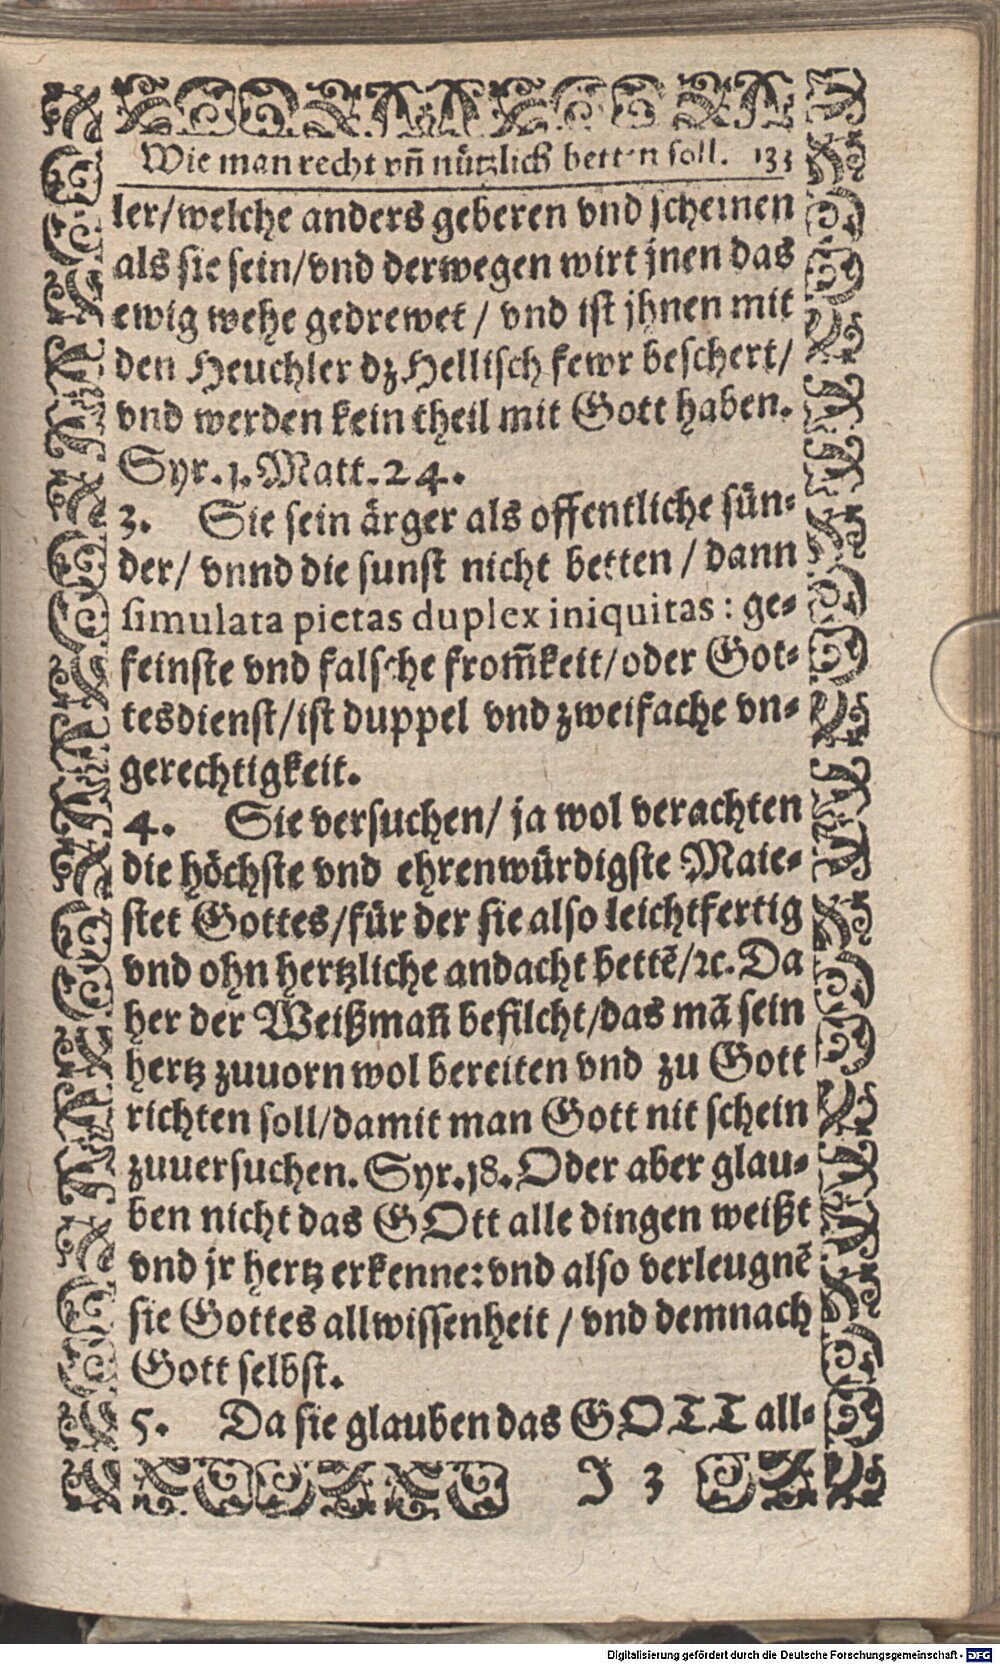 Wie man recht vñ nützlich betten soll. 133
ler/welche anders geberen vnd scheinen
als sie sein/vnd derwegen wirt jnen das
ewig wehe gedrewet / vnd ist jhnen mit
den Heuchler dz Hellisch fewr beschert/
vnd werden kein theil mit Gott haben.
Syr.1.Matt.24.
3. Sie sein ärger als offentliche sün-
der/ vnnd die sunst nicht betten / dann
simulata pietas duplex iniquitas : ge-
feinste vnd falsche from̃keit/oder Got-
tesdienst/ist duppel vnd zweifache vn-
gerechtigkeit.
4. Sie versuchen/ ja wol verachten
die höchste vnd ehrenwürdigste Maie-
stet Gottes/für der sie also leichtfertig
vnd ohn hertzliche andacht bettẽ/ꝛc. Da
her der Weißmañ befilcht/das mã sein
hertz zuuorn wol bereiten vnd zu Gott
richten soll/damit man Gott nit schein
zuuersuchen. Syr.18. Oder aber glau-
ben nicht das GOtt alle dingen weißt
vnd jr hertz erkenne: vnd also verleugnẽ
sie Gottes allwissenheit / vnd demnach
Gott selbst.
5. Da sie glauben das GOTT all-
I 3
Digitalisierung gefördert durch die Deutsche Forschungsgemeinschaft - DFG